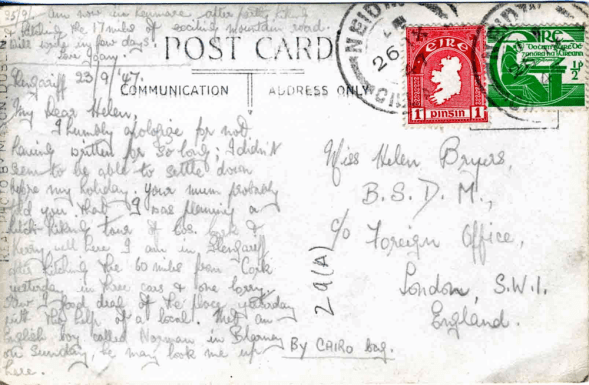 25/9. Am now in Kenmare after
the 17 miles of exciting mountain road.
Will write in few days
Love Joan.
POST CARD
COMMUNICATION
ADDRESS ONLY
Glengariff 23/9/47.
My Dear Helen,
I humbly apologise for not
having written for so long; I didn't
seem to be able to settle down
before my holiday. Your mum probably
told you that I was planning a
hitch-hiking tour of Cos. Cork &
Kerry well here I am in Glengariff
after hitching the 60 miles from Cork
yesterday in three cars & one lorry.
Saw a good deal of the place yesterday
with the help of a local. Met an
English boy called Norman in Blarney
on Sunday, he may look me up
here.
EIRE
1 PINSIN 1
½
26
Miss Helen Bryers,
B.S.D.M.,
c/o Foreign Office,
London, S.W.1.
England.
29(A)
By CAIRO bag.